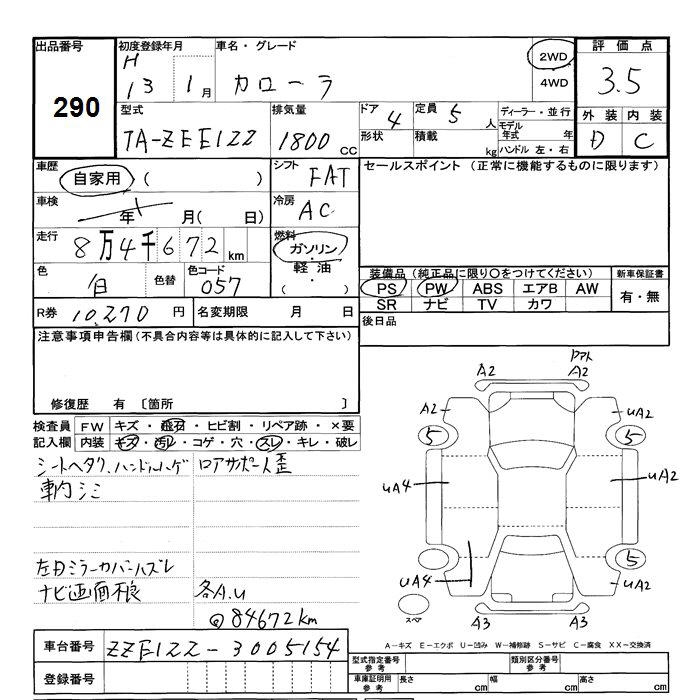 出品番号
290
初度登録年月
H
13 1月
車名・グレード
カローラ
2WD
4WD
評価点
3.5
外装 内装
D C
型式
TA-ZEE122
排気量
1800 CC
ドア 4
形状
定員 5 人
積載 kg
ディーラー・並行
モデル年式 年
ハンドル 左・右
車歴
自家用 ( )
シフト
FAT
セールスポイント (正常に機能するものに限ります)
車検
年 月( 日)
冷房
AC
走行
8万4千672 km
燃料
ガソリン・
軽油・
( )
色
白
色替
色コード
057
装備品 (純正品に限り〇をつけてください)
PS PW ABS エアB AW
SR ナビ TV カワ
新車保証書
有・無
R券 10,270 円
名変期限 月 日
後日品
注意事項申告欄(不具合内容等は具体的に記入して下さい)
修復歴 有 〔箇所 〕
検査員記入欄
FW キズ・飛石・ヒビ割・リペア跡・×要
内装 キズ・汚レ・コゲ・穴・スレ・キレ・破レ
シートヘタク、ハンドルハゲ
ロアサポート歪
車内シミ
左日ミラーカバーハズレ
ナビ画面不良
各A.U
@84672km
A2
A2
A2
UA2
5
5
UA4
UA2
5
UA4
UA2
スペア
A3
A3
車台番号
ZZE122-3005154
登録番号
A-キズ E-エクボ U-凹み W-補修跡 S-サビ C-腐食 XX-交換済
型式指定番号
参考
類別区分番号
参考
車庫証明用
参考
長さ cm
幅 cm
高さ cm